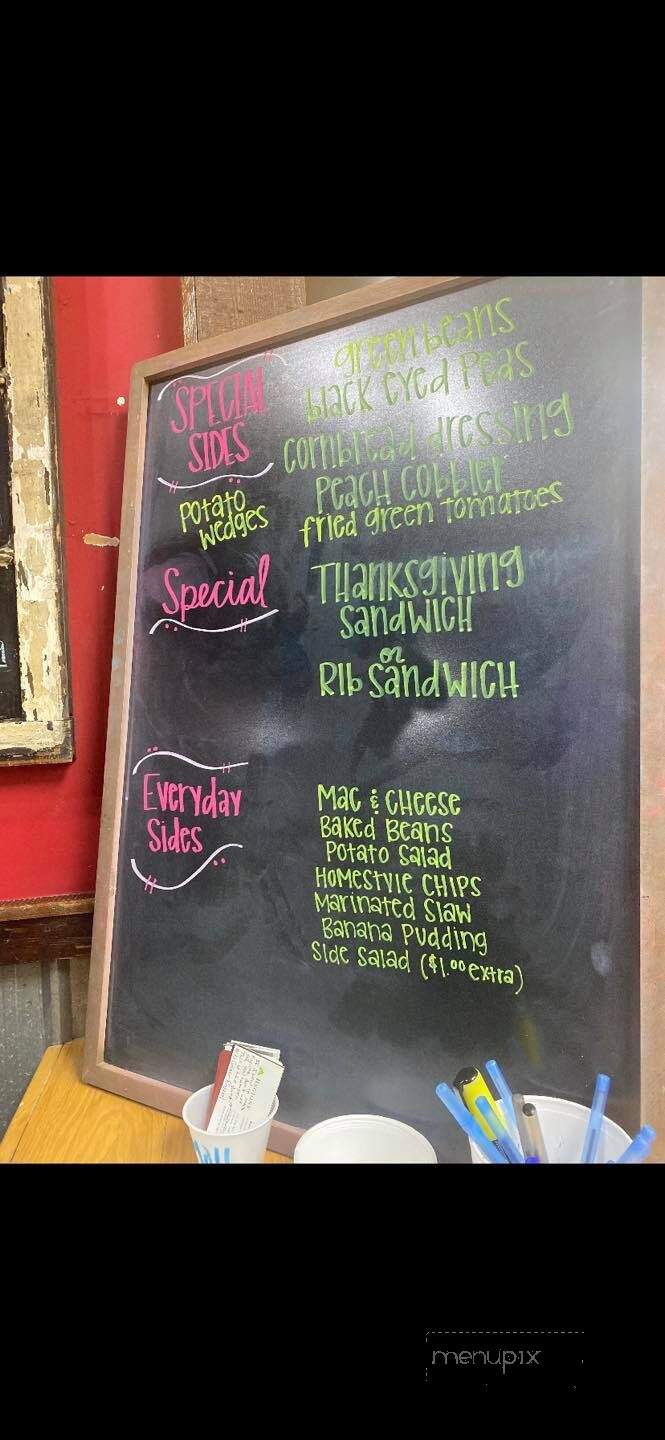 SPECIAL
SIDES
green beans
black eyed Peas
cornbread dressing
Peach Cobbler
fried green tomatoes
Potato
Wedges
Special
THanksgiving
SandWICH
or
RIb SandWICH
Everyday
Sides
Mac & CHeese
Baked Beans
Potato Salad
HOMestyle CHIPS
Marinated Slaw
Banana Pudding
Side Salad ($1.00 extra)
menupix